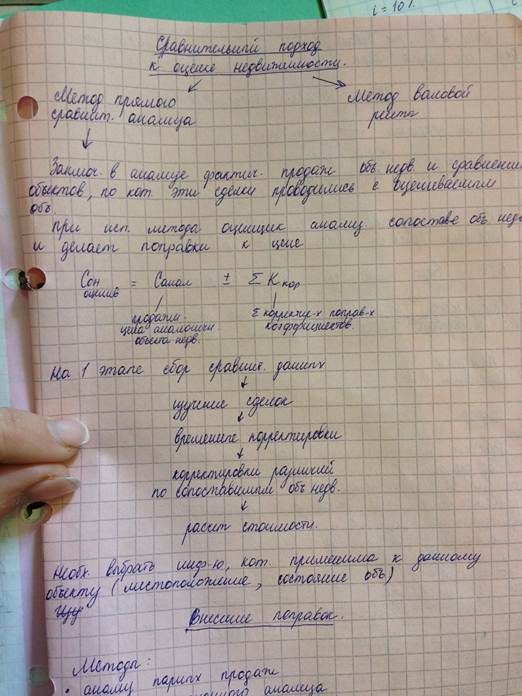 i = 10%
Сравнительный подход
к оценке недвижимости.
Метод прямого
сравнит. анализа
Метод валовой
ренты
Заключ. в анализе фактич. продаж объ. недв. и сравнении
объектов, по кот. эти сделки проводились с оцениваемым
объ.
При исп. метода оценщик анализ. сопостав объ. недв
и делает поправки к цене
Сон = Санал ± Σ Ккор
оцнив
продажн.
цена аналогичн
объекта недв.
Σ корректир-х поправ-х
коэффициентов.
На 1 этапе сбор сравнит. данных
изучение сделок
временные корректировки
корректировки различий
по сопоставимым объ недв.
расчет стоимости.
Необх. выбрать инф-ю, кот. применима к данному
объекту (местоположение, состояние объ)
Внесение поправок.
Методы:
• анализ парных продаж
анализа